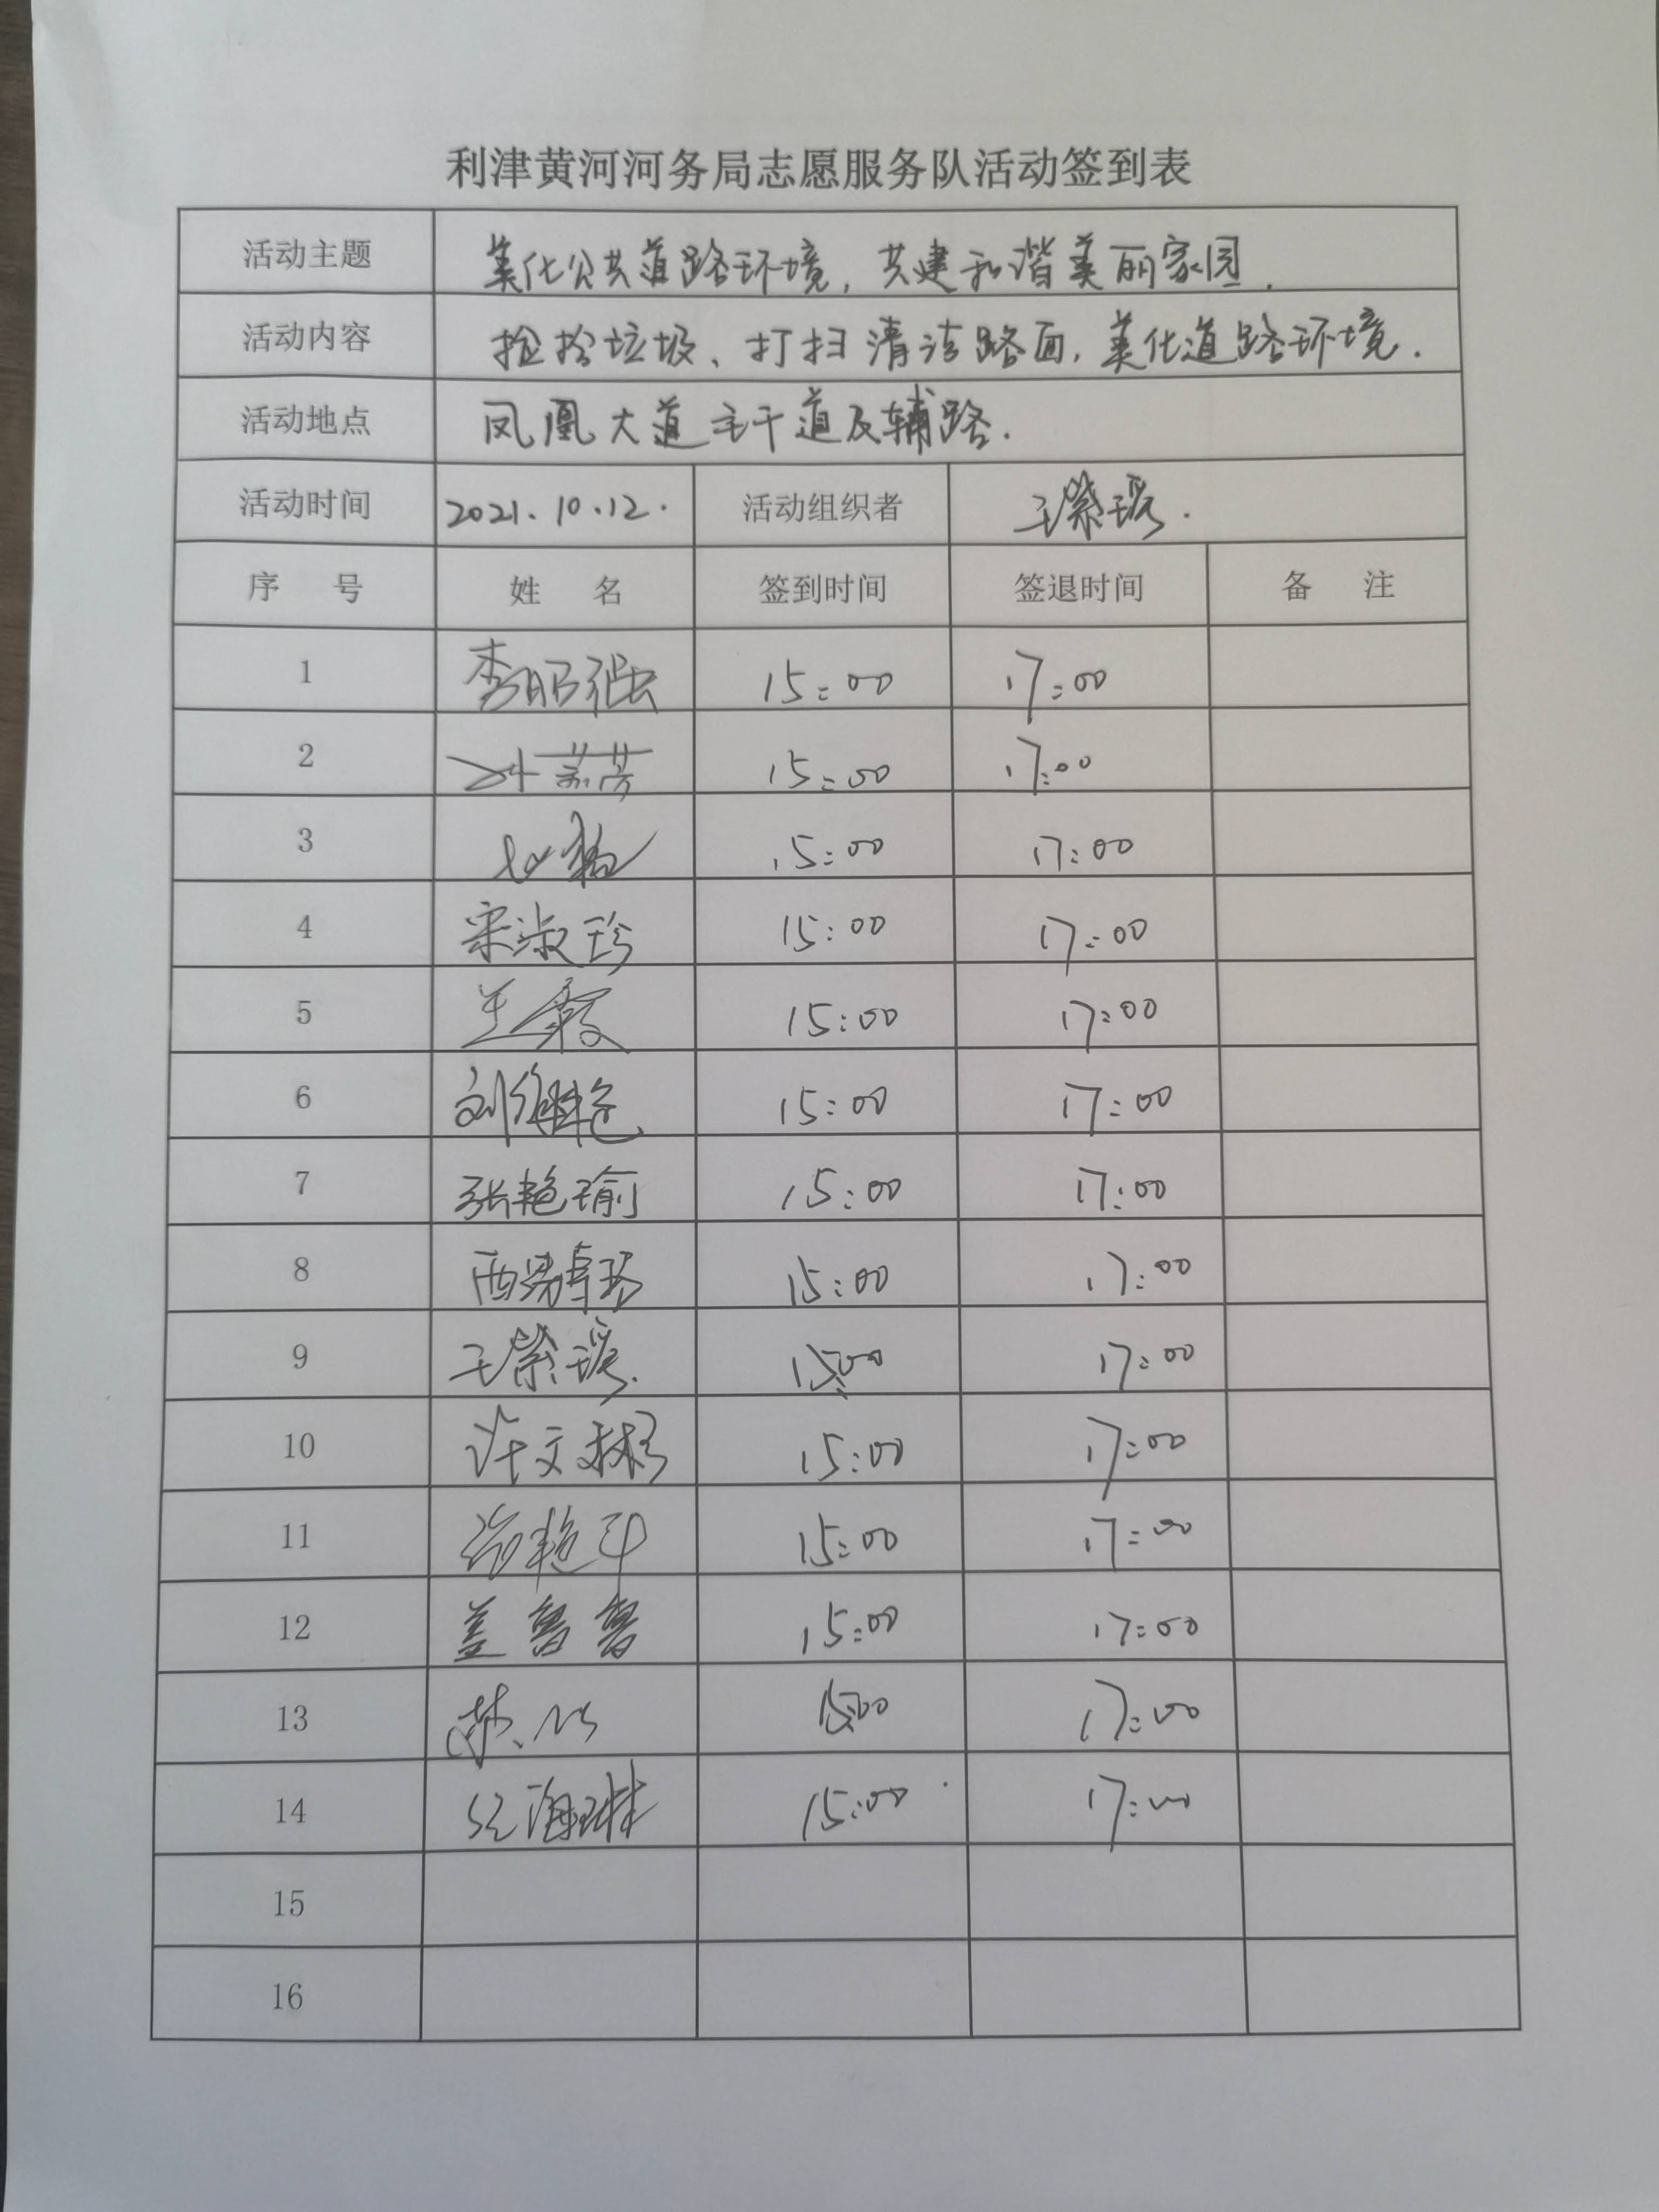 利津黄河河务局志愿服务队活动签到表
活动主题 美化公共道路环境，共建和谐美丽家园.
活动内容 捡拾垃圾、打扫清洁路面，美化道路环境.
活动地点 凤凰大道主干道及辅路.
活动时间 2021.10.12. 活动组织者 王紫瑶.
序 号 姓 名 签到时间 签退时间 备 注
1 李昭强 15:00 17:00
2 15:00 17:00
3 15:00 17:00
4 宋淑珍 15:00 17:00
5 15:00 17:00
6 15:00 17:00
7 张艳瑜 15:00 17:00
8 15:00 17:00
9 王紫瑶. 15:00 17:00
10 许文彬 15:00 17:00
11 15:00 17:00
12 盖鲁鲁 15:00 17:00
13 15:00 17:00
14 15:00 17:00
15
16